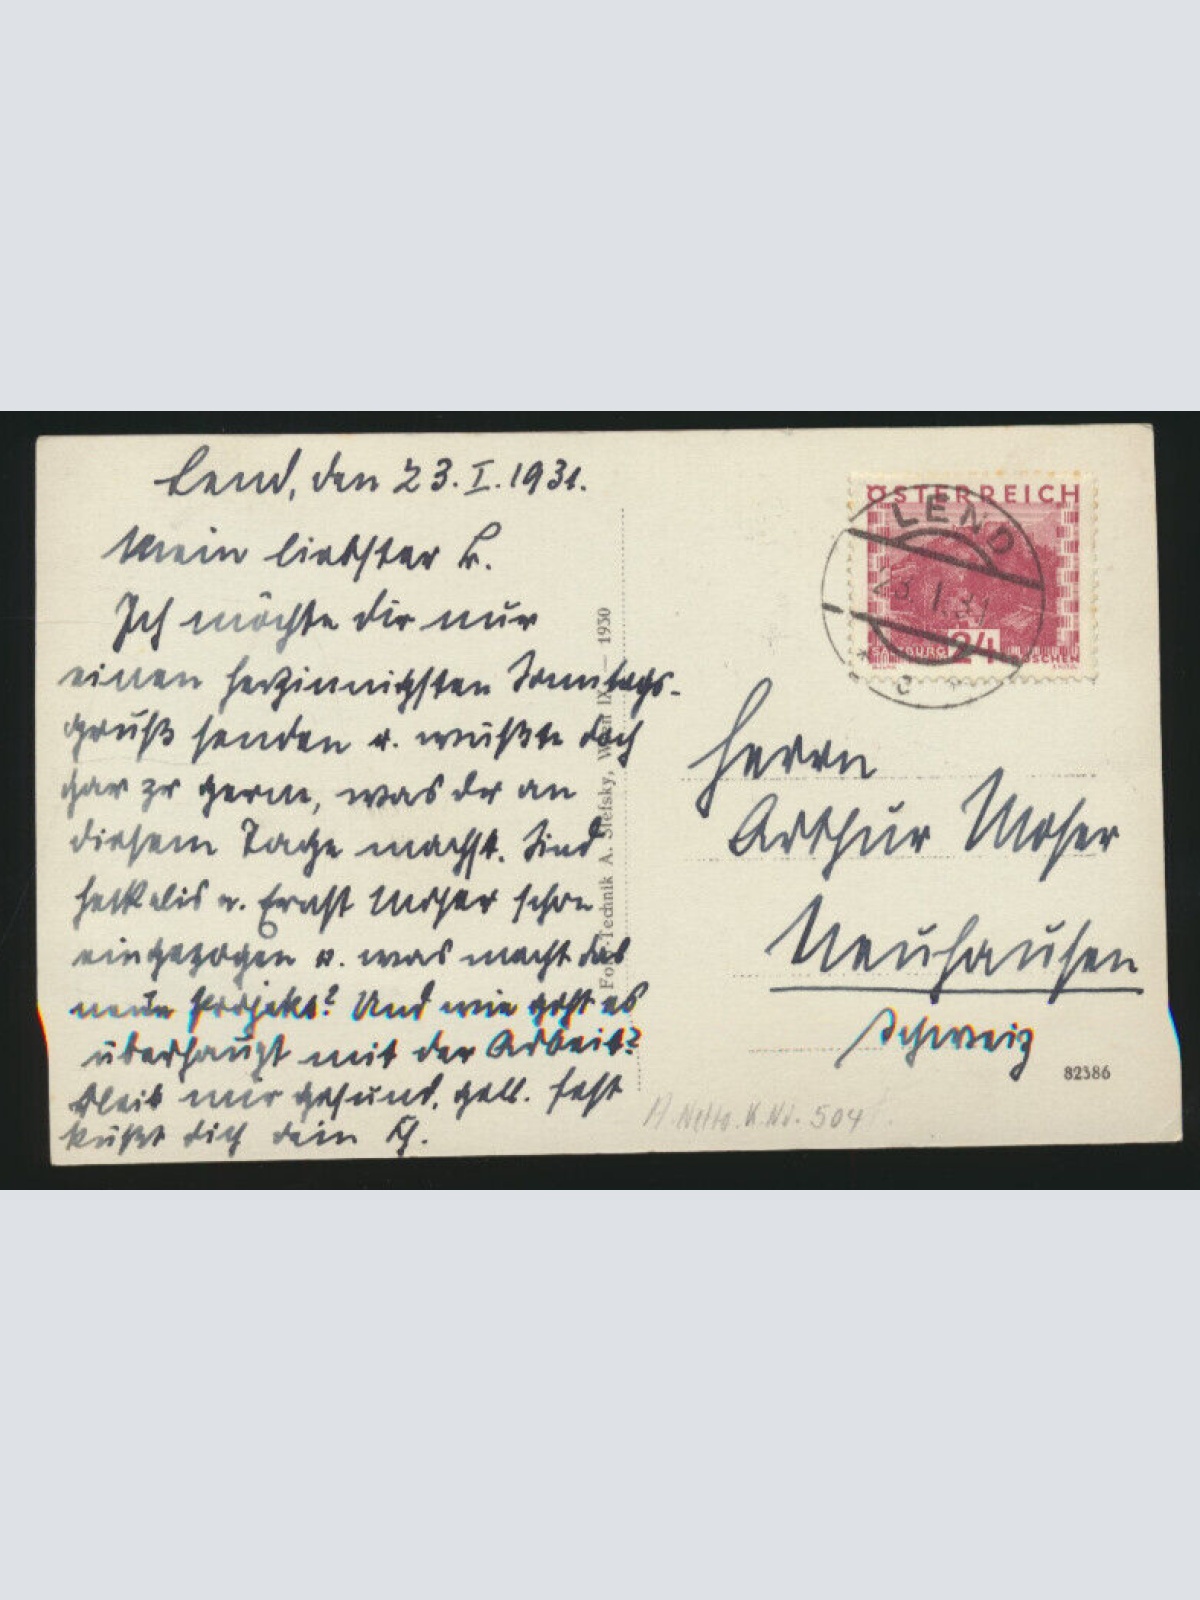 Lend, den 23. I. 1931.
Mein liebster B.
Ich möchte dir nur
einen herzinnigsten Sonntags-
gruß senden u. wüßte doch
gar zu gerne, was du an
diesem Tage machst. Sind
u. Ernst Moser schon
eingezogen u. was macht das
neue Projekt? Und wie geht es
überhaupt mit der Arbeit?
Bleib mir gesund, gell. Fest
küßt dich dein
Foto-Technik A. Stefsky, Wien IX — 1930
ÖSTERREICH
LEND
23. I. 31
SALZBURG 24 GROSCHEN
Herrn
Arthur Moser
Neuhausen
Schweiz
82386
504